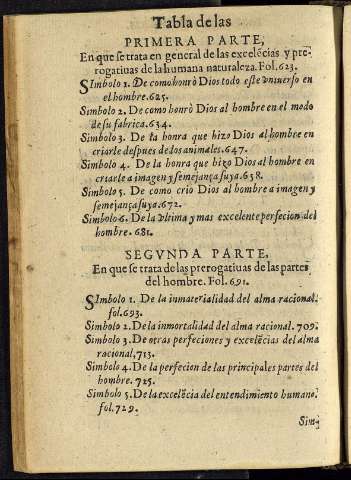 Tabla de las
PRIMERA PARTE,
En que se trata en general de las excelẽcias y pre-
rogatiuas de la humana naturaleza. Fol. 623.
SImbolo 1. De como honrò Dios todo este vniuerso en
el hombre. 625.
Simbolo 2. De como honrò Dios al hombre en el modo
de su fabrica. 634.
Simbolo 3. De la honra que hizo Dios al hombre en
criarle despues de dos animales. 647.
Simbolo 4. De la honra que hizo Dios al hombre en
criarle a imagen y semejança suya. 658.
Simbolo 5. De como crio Dios al hombre a imagen y
semejança suya. 672.
Simbolo 6. De la vltima y mas excelente perfecion del
hombre. 681.
SEGVNDA PARTE,
En que se trata de las prerogatiuas de las partes
del hombre. Fol. 691.
SImbolo 1. De la inmaterialidad del alma racional.
fol. 693.
Simbolo 2. De la inmortalidad del alma racional. 709.
Simbolo 3. De otras perfeciones y excelẽcias del alma
racional, 713.
Simbolo 4. De la perfecion de las principales partes del
hombre. 725.
Simbolo 5. De la excelẽcia del entendimiento humano.
fol. 729.